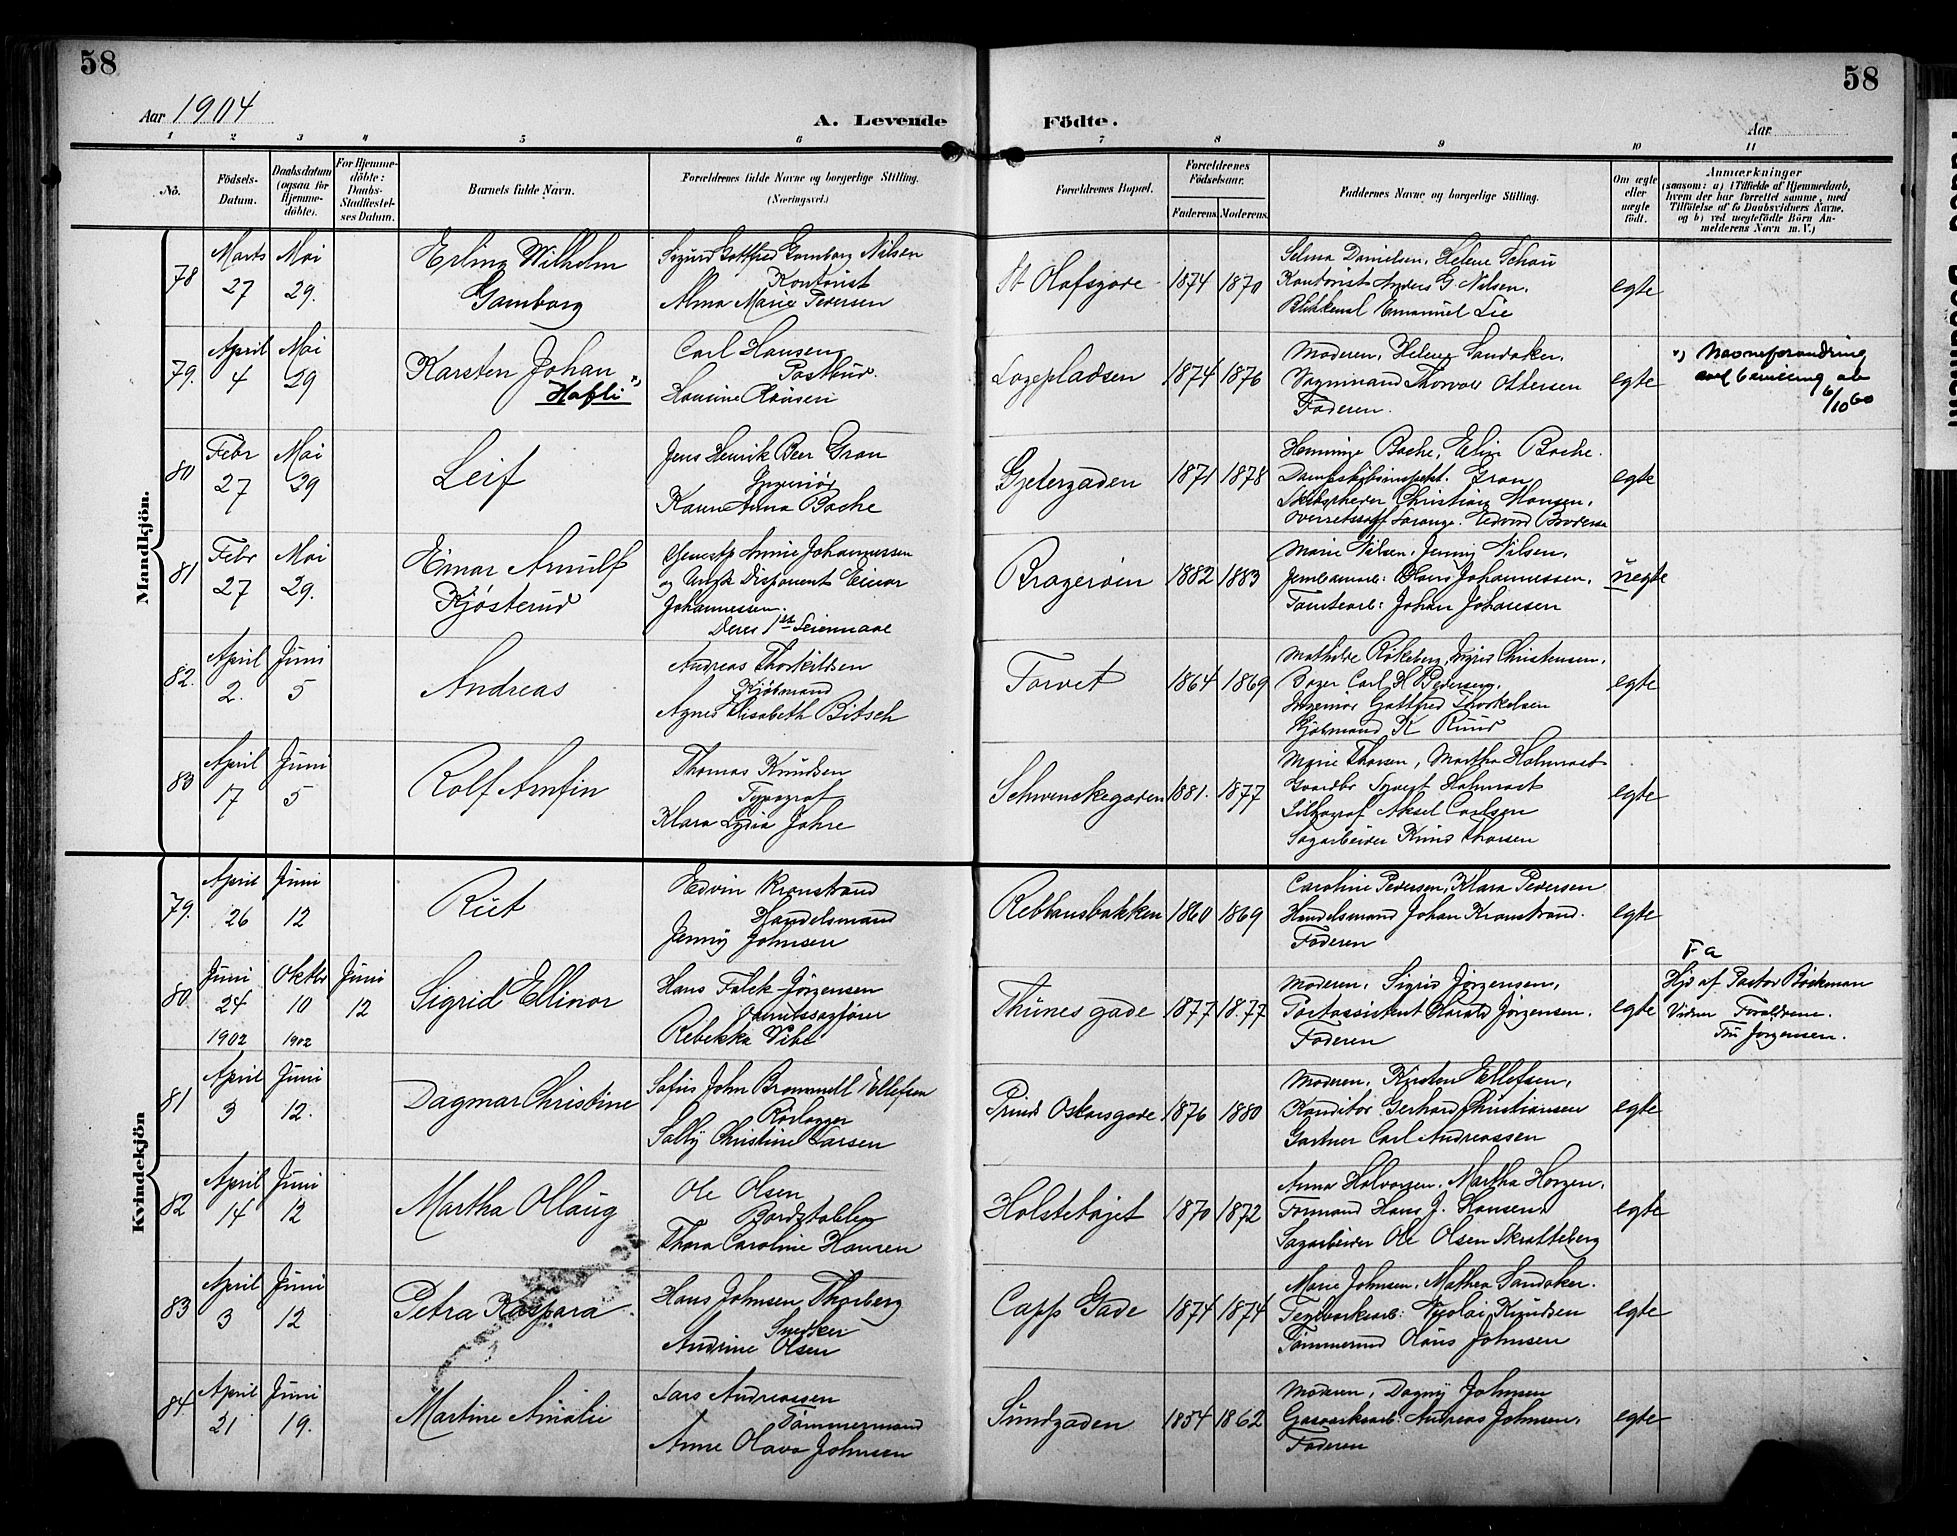 58
58
Aar 1904
A. Levende Födte.
Aar
1 2 3 4 5 6 7 8 9 10 11
No.
Födsels-Datum.
Daabsdatum (ogsaa för Hjemme-döbte).
For Hjemme-döbte: Daabs-Stadfæstel-ses Datum.
Barnets fulde Navn.
Forældrenes fulde Navne og borgerlige Stilling. (Næringsvei.)
Forældrenes Bopæl.
Forældrenes Födselsaar.
Faderens. Moderens.
Faddernes Navne og borgerlige Stilling.
Om ægte eller uægte födt.
Anmærkninger
(saasom: a) i Tilfælde af Hjemmedaab, hvem der har forrettet samme, med Tilföielse af to Daabsvidners Navne, og b) ved uægtefödte Börn An-melderens Navn m. V.)
Mandkjön.
78 Marts 27 Mai 29.
Erling Wilhelm Gamborg
Sigurd Gottfred Gamborg Nilsen
Kontorist
Alma Marie Pedersen
St Olafsgade 1874 1870
Selma Danielsen, Helene Schau
Kontorist Anders G Nilsen,
Blikkensl Emanuel Lie
egte
79. April 4 Mai 29
Karsten Johan Hafli x)
Carl Hansen
Postbud.
Hansine Hansen
Løgepladsen 1874 1876
Moderen, Helene Sandaker,
Vognmand Thorvald Ottersen
Faderen.
egte
x) Navneforandring
6/10 60
80 Febr 27 Mai 29
Leif
Jens Henrik Beer Gran
Ingeniør
Karen Anna Bache
Gjetergaden 1871 1878
Henninge Bache, Elise Bache.
Dampskibsinspekt. Gran,
Skibsreder Christian Hansen,
egte
81 Febr 27 Mai 29.
Einar Arnulf Kjøsterud
Tjenestp Annie Johannessen
og Ungk Disponent Einar
Johannessen.
Deres 1ste Leiermaal
Bragerøen 1882 1883
Marie Nilsen, Jenny Nilsen,
Jernbanearb: Hans Johannessen,
Tomtearb: Johan Johansen
uegte
82. April 2. Juni 5
Andreas
Andreas Thorkildsen
Kjøbmand
Agnes Elisabeth Bitsch
Torvet 1864 1869
Mathilde Røkeberg, Sigrid Christensen,
Bager Carl H Pedersen,
Ingeniør Gottfred Thorkelsen
Kjøbmand K Ruud
egte
83 April 17 Juni 5
Rolf Arnfin
Thomas Knudsen
Typograf
Klara Lydia Johre
Schwenckegaden 1881. 1877
Marie Thorsen, Martha Holmvast
Gaardbr Syvert Holmvast
Lithograf Aksel Carlsen
Sagarbeider Knud Thorsen
egte
Kvindekjön
79. April 26 Juni 12
Rut
Edvin Kronstrand
Handelsmand
Jenny Johnsen
Rebbansbakken 1860 1869
Caroline Pedersen, Klara Pedersen
Handelsmand Johan Kronstrand.
Faderen
egte
80 Juni 24 1902 Oktbr 10 1902 Juni 12
Sigrid Ellinor
Hans Falck-Jørgensen
Overretssagfører
Rebekka Vibe
Thunes gade 1877 1877
Moderen, Sigrid Jørgensen,
Postassistent Harald Jørgensen.
Faderen
egte
Fa
Hjd af Pastor Bøckman
Vidner Forældrene.
Fru Jørgensen.
81 April 3 Juni 12.
Dagmar Christine
Sofus John Brommell Ellefsen
Rørlægger
Sally Christine Larsen
Prinds Oskarsgade. 1876 1880
Moderen, Kirsten Ellefsen,
Konditor Gerhard Christiansen
Gartner Carl Andreassen
egte
82 April 14 Juni 12
Martha Ollaug
Ole Olsen
Bordstabler
Thora Caroline Hansen
Holstehøjet 1870 1872
Anna Halvorsen, Martha Horgen,
Formand Hans J. Hansen,
Sagarbeider Ole Olsen Skratteberg
egte
83 April 3 Juni 12
Petra Kaspara.
Hans Johnsen Thorberg
Snedker
Andrine Olsen
Capps Gade 1874 1874
Marie Johnsen, Mathea Sandaker.
Teglverksarb: Nicolai Knudsen
Tømmermd Hans Johnsen
egte
84. April 21 Juni 19.
Martine Amalie
Lars Andreassen
Tømmermand
Anne Olava Johnsen
Sundgaden 1854 1862
Moderen, Dagny Johnsen
Gasværksarb: Andreas Johnsen,
Faderen
egte